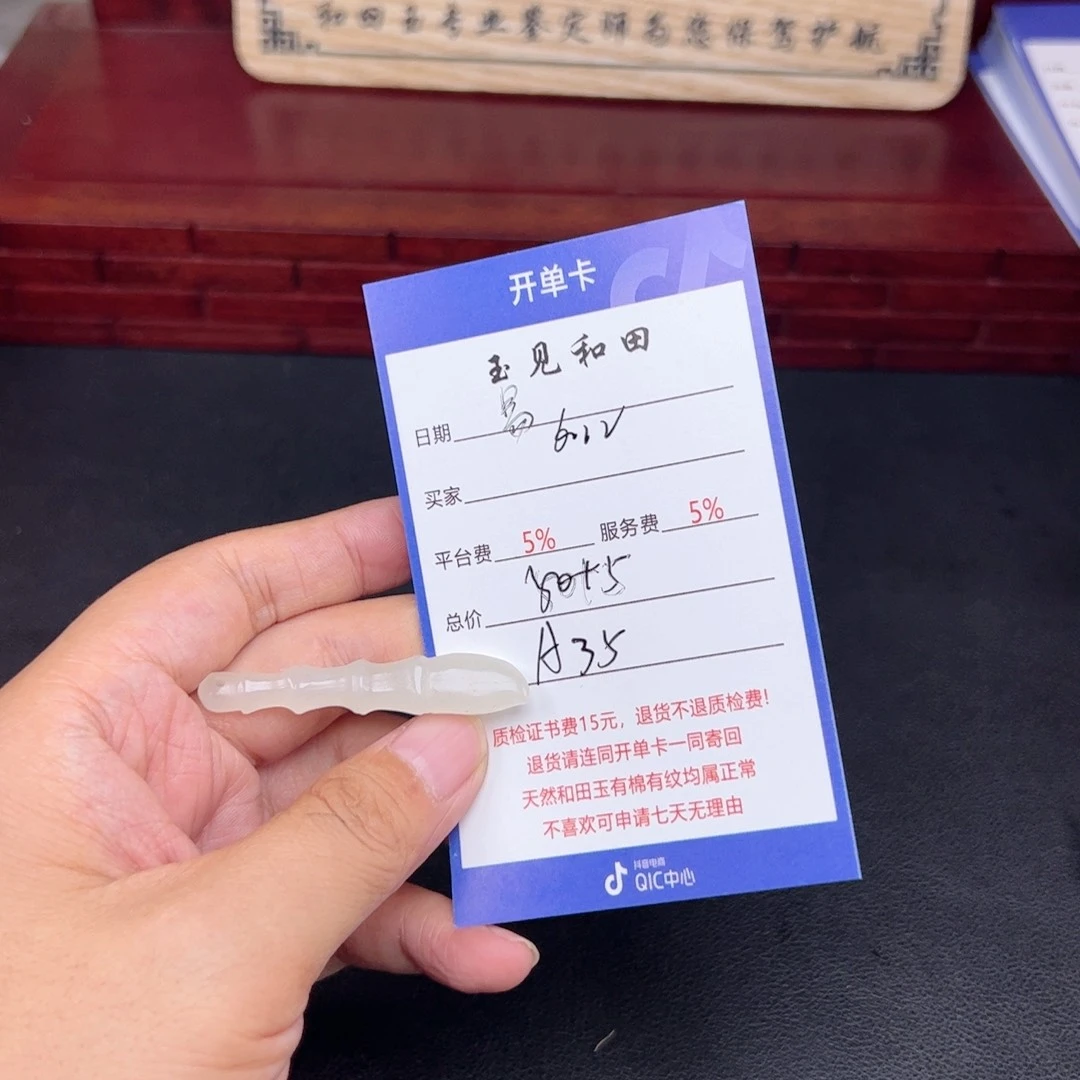 和田玉专业鉴定师为您保驾护航
开单卡
玉见和田
日期 6.12
买家
平台费 5% 服务费 5%
总价 80+5
A35
质检证书费15元，退货不退质检费!
退货请连同开单卡一同寄回
天然和田玉有棉有纹均属正常
不喜欢可申请七天无理由
抖音电商
QIC中心